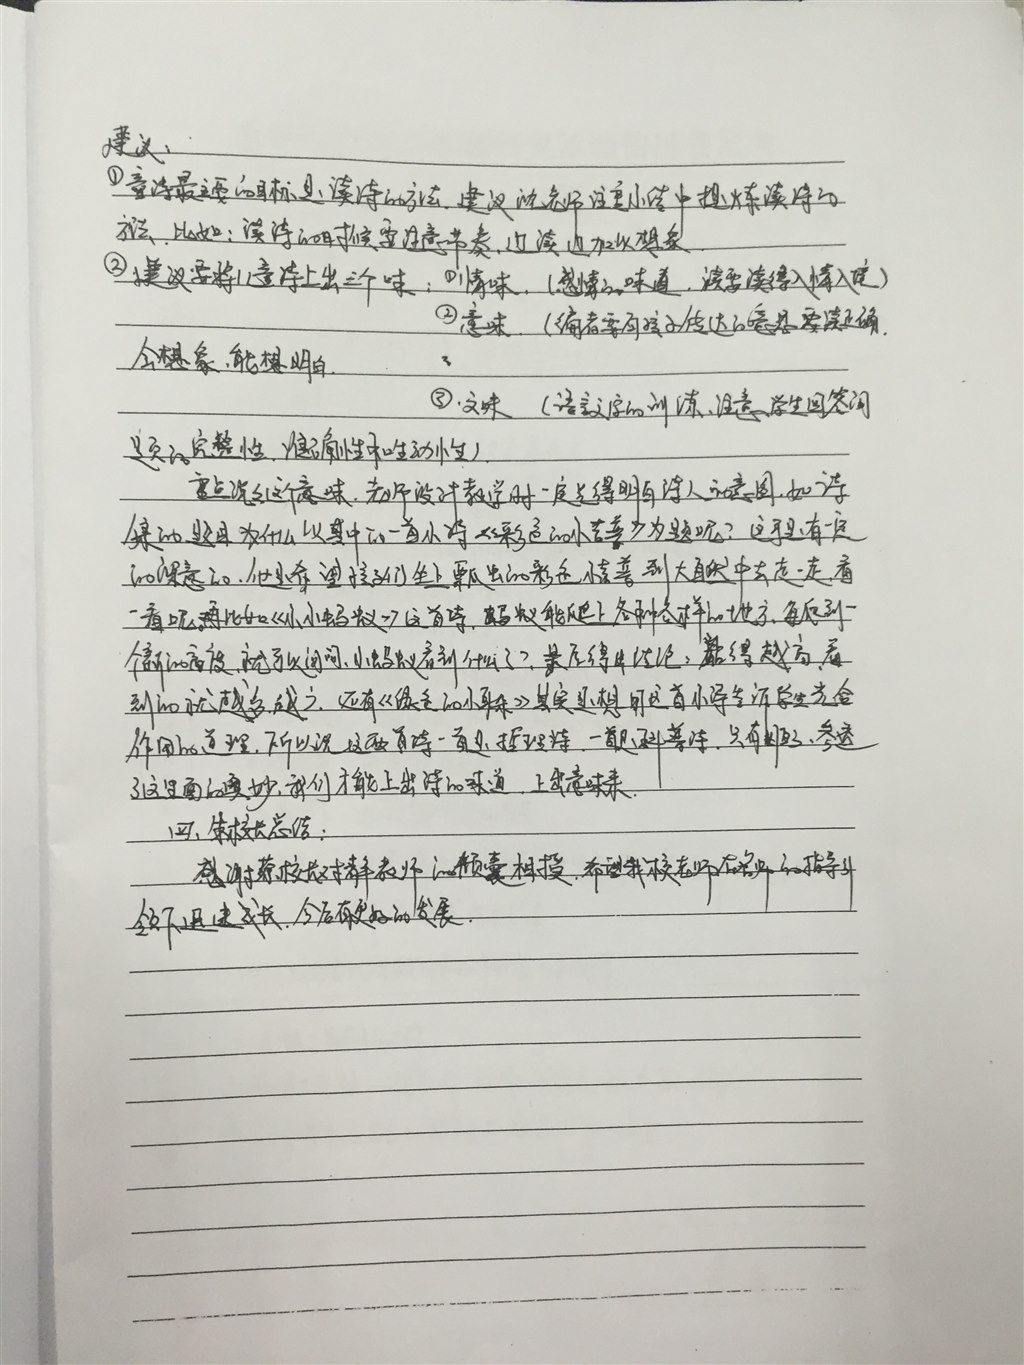 建议：
①童诗最主要的目标是读诗的方法，建议沈老师注重小结中提炼读诗的
方法，比如：读诗的时候要注意节奏，边读边加以想象。
②建议要将儿童诗上出三个味：①情味，（感情的味道，读要读得入情入境）
②意味，（编者要向孩子传达的意思要读正确，
会想象，能想明白。
③文味（语言文字的训练，注意学生回答问
题的完整性，准确性和生动性）
重点说说这个意味，老师设计教学时一定先得明白诗人的意图，如诗
的题目为什么以其中的一首小诗《彩色的小

到大自然中去走一走，看
一看呢，再比如《小小蚂蚁》这首诗，蚂蚁能爬上各种各样的地方，每爬到一
个新的高度，就可以问问，小蚂蚁看到什么了？最后得出结论：爬得越高，看
到的就越多，越广，还有《绿色的小耳朵》其实是想用这首小诗告诉学生光合
作用的道理，所以说这两首诗一首是哲理诗，一首是科普诗，只有明了、参透
了这里面的奥妙，我们才能上出诗的味道，上出意味来。
四、朱校长总结：
感谢蔡校长对青年教师的倾囊相授，希望我校老师在名师的指导引
领下迅速成长，今后有更好的发展。